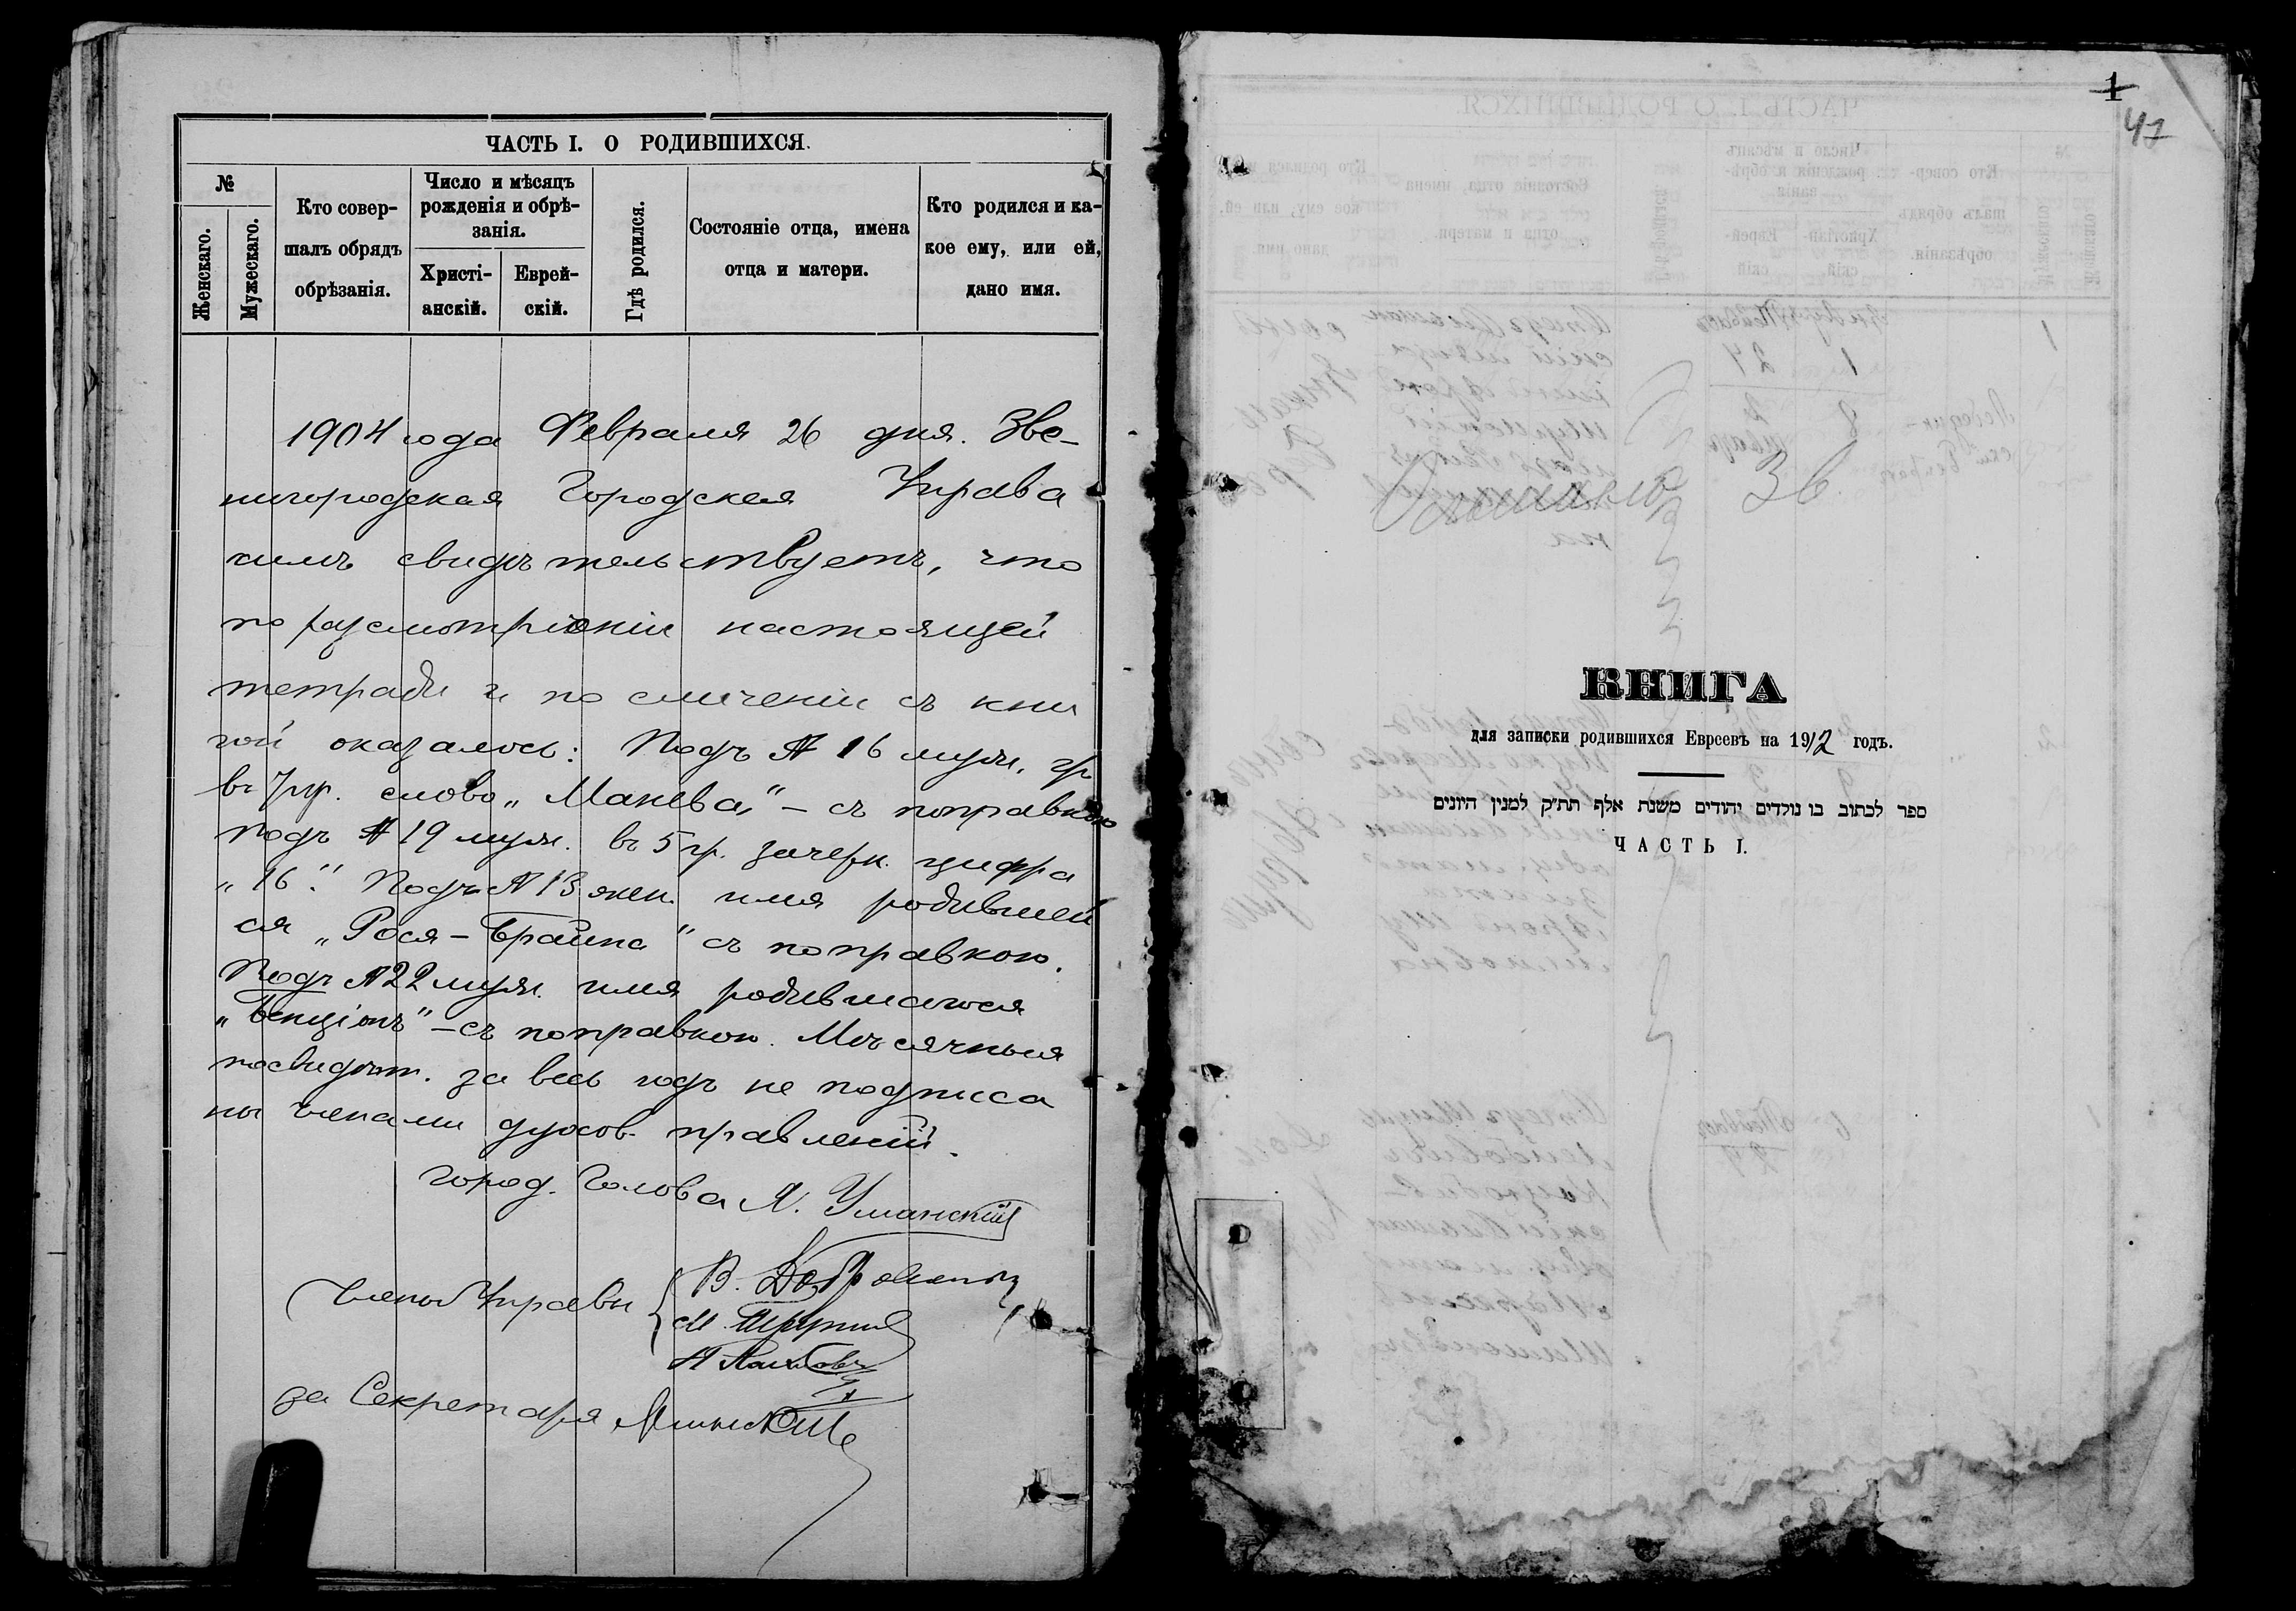 ЧАСТЬ I. О РОДИВШИХСЯ.
№
Женскаго.
Мужескаго.
Кто совер-
шалъ обрядъ
обрѣзанія.
Число и мѣсяцъ
рожденія и обрѣ-
занія.
Христі-
анскій.
Еврей-
скій.
Гдѣ родился.
Состояніе отца, имена
отца и матери.
Кто родился и ка-
кое ему, или ей,
дано имя.
1904 года Февраля 26 дня. Зве-
нигородская Городская Управа
симъ свидѣтельствуетъ, что
по разсмотрѣніи настоящей
тетради и по сличеніи съ кни
гой оказалось: Подъ № 16 муж.
въ 7 гр. слово „ Манева" – съ поправкою
подъ № 19 муж. въ 5 гр. зачерк. цифра
„ 16". Подъ № 13 жен. имя родившей
ся „ Рося – Брайна " съ поправкою.
Подъ № 22 муж. имя родившагося
„ Бенціонъ" – съ поправкою. Мѣсячныя
посвидѣт. за весь годъ не подписа
ны членами духов. правленій.
Город. Голова Я. Уманскій
Члены Управы
В.
М.
А
за Секретаря
1
47
Зв.
КНИГА
для записки родившихся Евреевъ на 1912 годъ.
ספר לכתוב בו נולדים יהודים משנת אלף תת״ק למנין היונים
ЧАСТЬ I.